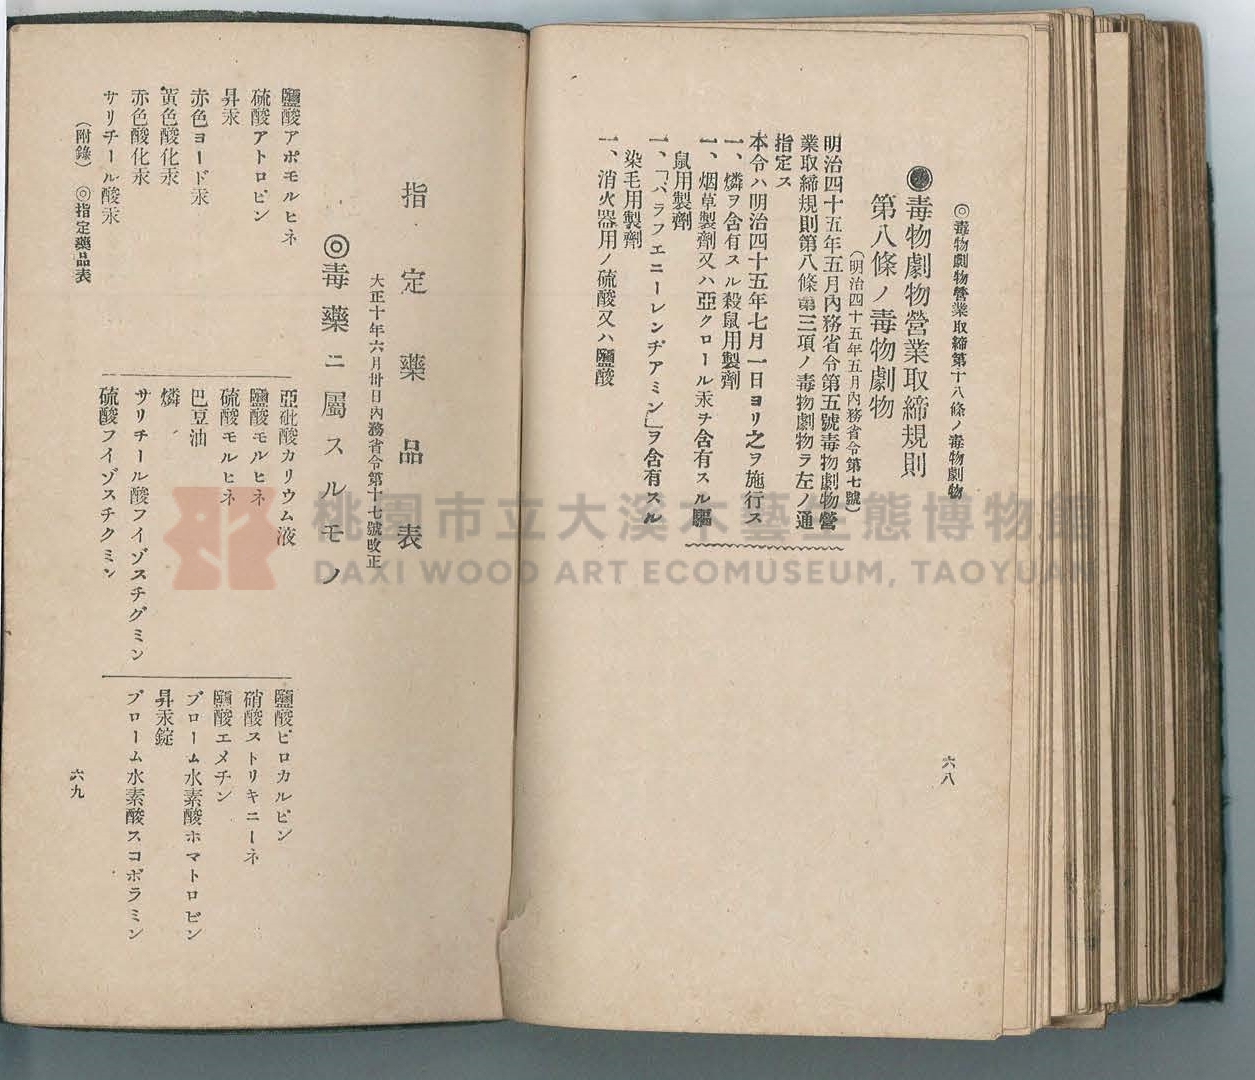 ◎毒物劇物營業取締第十八條ノ毒物劇物
毒物劇物營業取締規則
第八條ノ毒物劇物
(明治四十五年五月內務省令第七號)
明治四十五年五月內務省令第五號毒物劇物營
業取締規則第八條第三項ノ毒物劇物ヲ左ノ通
指定ス
本令ハ明治四十五年七月一日ヨリ之ヲ施行ス
一、燐ヲ含有スル殺鼠用製劑
一、烟草製劑又ハ亞クロール汞ヲ含有スル驅
鼠用製劑
一、「パラフエニーレンヂアミン」ヲ含有スル
染毛用製劑
一、消火器用ノ硫酸又ハ鹽酸
六八
指定藥品表
大正十年六月卅日內務省令第十七號改正
◎毒藥ニ屬スルモノ
鹽酸アポモルヒネ
硫酸アトロピン
昇汞
赤色ヨード汞
黃色酸化汞
赤色酸化汞
サリチール酸汞
亞砒酸カリウム液
鹽酸モルヒネ
硫酸モルヒネ
巴豆油
燐
サリチール酸フイゾスチグミン
硫酸フイゾスチグミン
鹽酸ピロカルピン
硝酸ストリキニーネ
鹽酸エメチン
ブローム水素酸ホマトロピン
昇汞錠
ブローム水素酸スコポラミン
(附錄) ◎指定藥品表
六九
桃園市立大溪木藝生態博物館
DAXI WOOD ART ECOMUSEUM, TAOYUAN